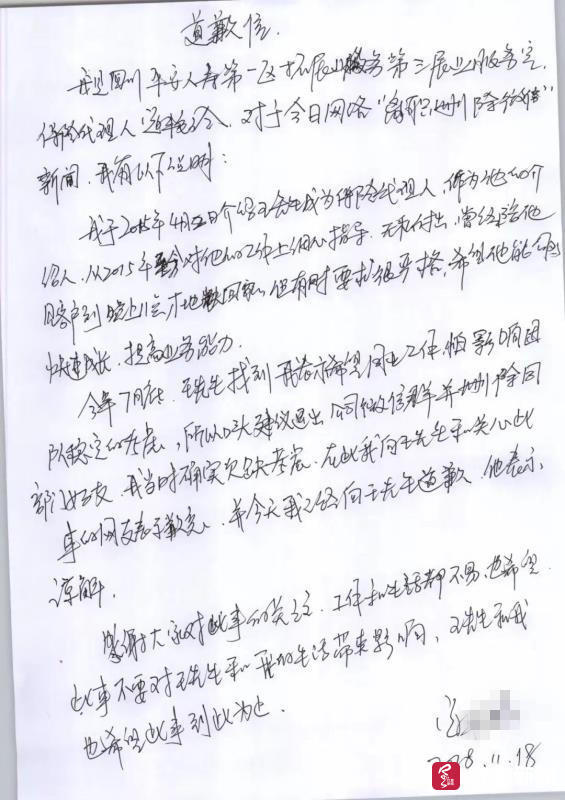 道歉信
我是四川平安人寿第一区拓展业服务第三展业服务室
保险代理人 对于今日网络“离职删除微信”
新闻,我有以下说明:
我于2015年4月 日介绍王先生成为保险代理人,作为他的介
绍人,从2015年至今对他的工作上细心指导、无私付出,曾经陪他
见客户到晚上 才地铁回家。但有时要求很严格,希望他能够
快速成长,提高业务能力。
今年7月底,王先生找到我表示希望 工作,怕影响团
队稳定的考虑,所以口头建议退出公司微信群并删除同
部门好友,我当时确实欠缺考虑,在此我向王先生和关心此
事的网友表示歉意,并今天我已经向王先生道歉,他表示
谅解。
感谢大家对此事的关注,工作和生活都不易,也希望
此事不要对王先生和我的生活带来影响,王先生和我
也希望此事到此为止。
2018.11.18